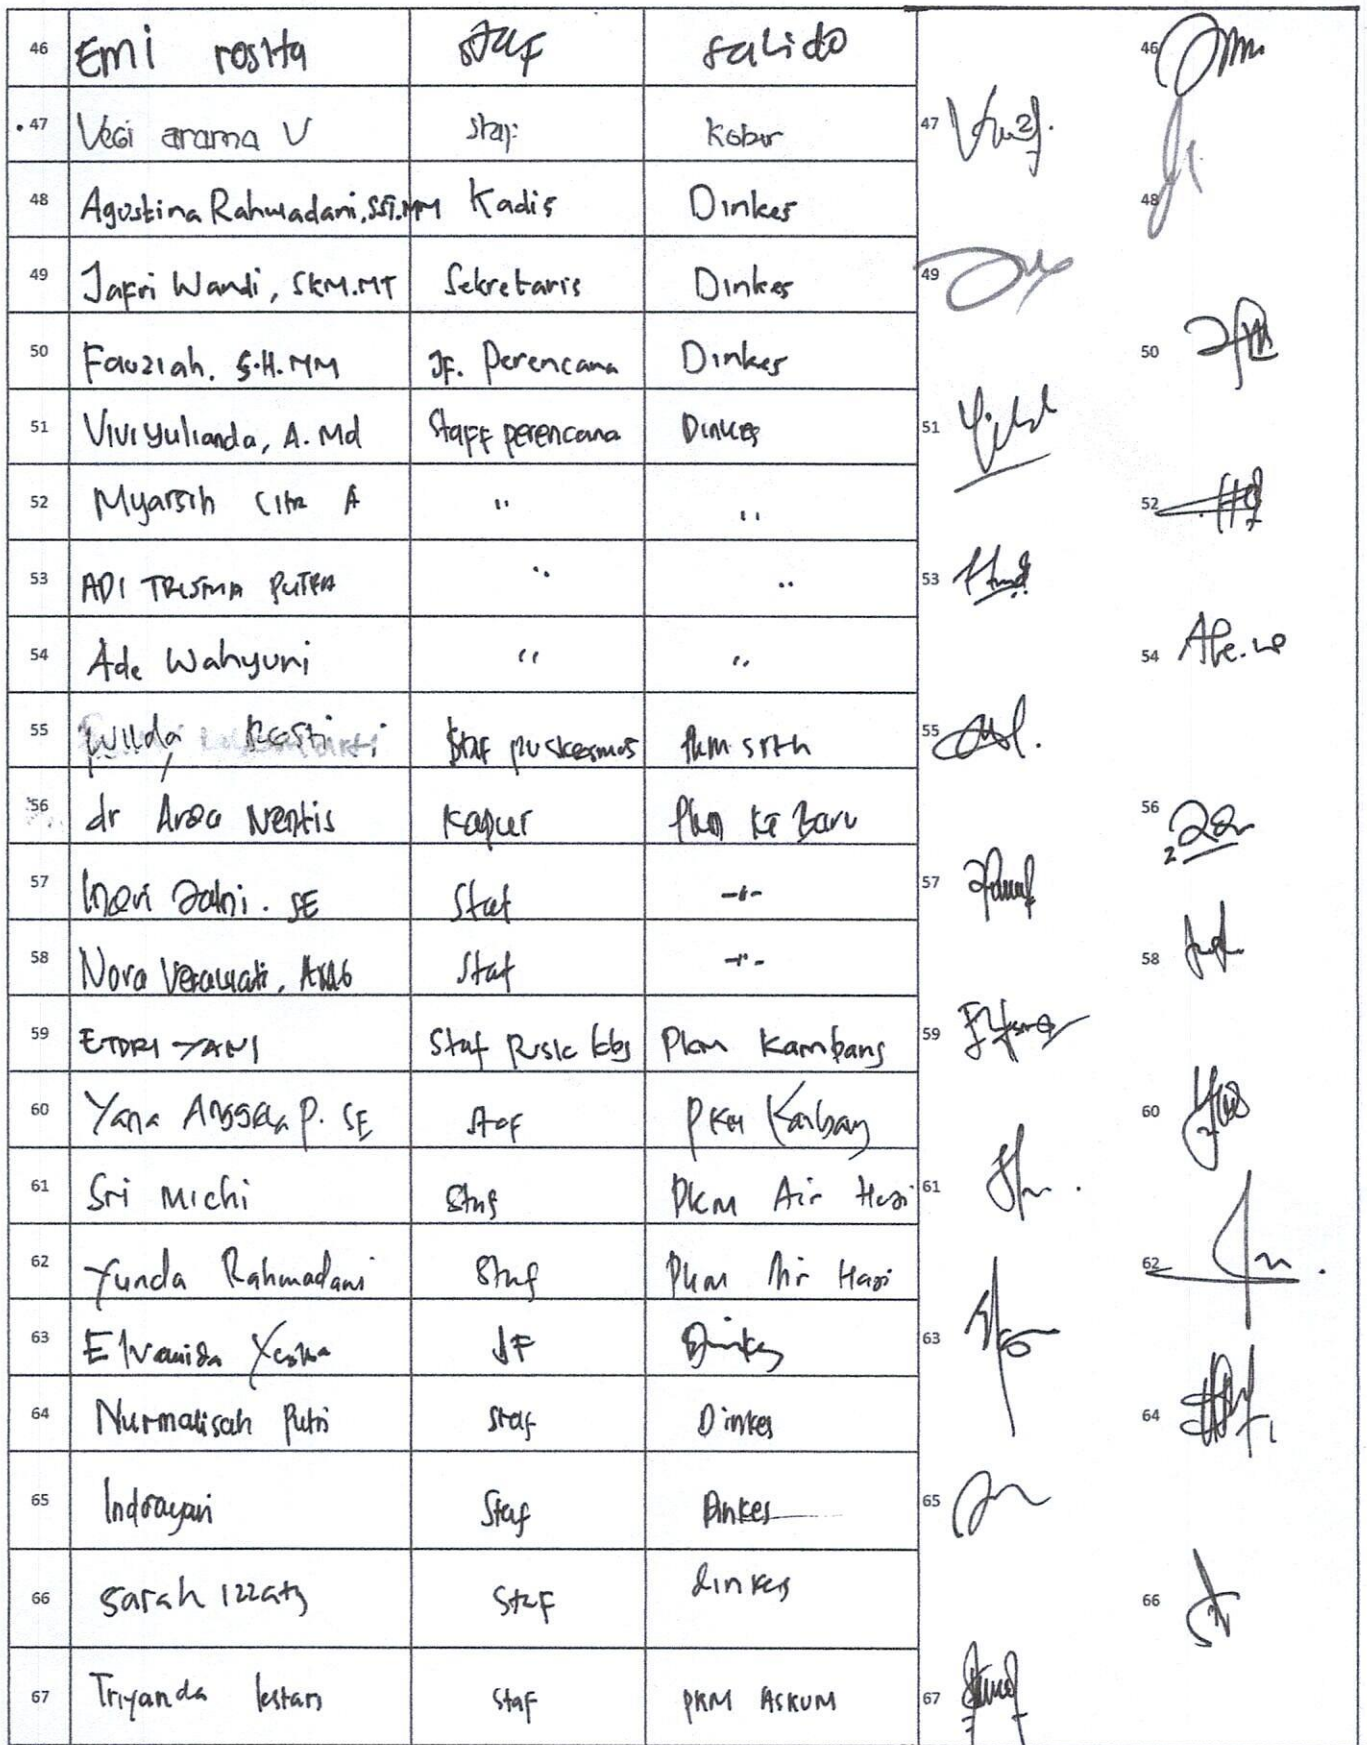 46 Emi rosita staf salido 46
47 Vegi arama V staf Kobar 47
48 Agustina Rahmadani, SSi.MM Kadis Dinkes 48
49 Jafri Wandi, SKM.MT Sekretaris Dinkes 49
50 Fauziah. S.H.MM JF. Perencana Dinkes 50
51 Vivi yulianda, A.Md Staff perencana Dinkes 51
52 Myarsih Citra A " " 52
53 ADI TRISMA PUTRA " " 53
54 Ade Wahyuni " " 54
55 Wilda Staf puskesmas Pkm 55
56 dr Kapus Pkm Baru 56
57 SE Staf -"- 57
58 Nora Verawati, Staf -"- 58
59 YANI Staf Pusk kbg Pkm Kambang 59
60 Yana P. SE Staf PKM Kambang 60
61 Sri Michi Staf PKM Air Haji 61
62 Yunda Rahmadani Staf Pkm Air Haji 62
63 JF Dinkes 63
64 Nurmalisah Putri Staf Dinkes 64
65 Indrayani Staf Dinkes 65
66 Sarah Izzaty Staf dinkes 66
67 Triyanda lestari Staf PKM ASKUM 67